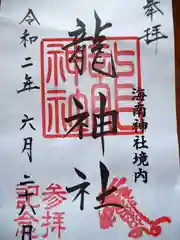 奉拝
海南神社境内
龍神社
令和二年 六月 二十八日
参拝
記念